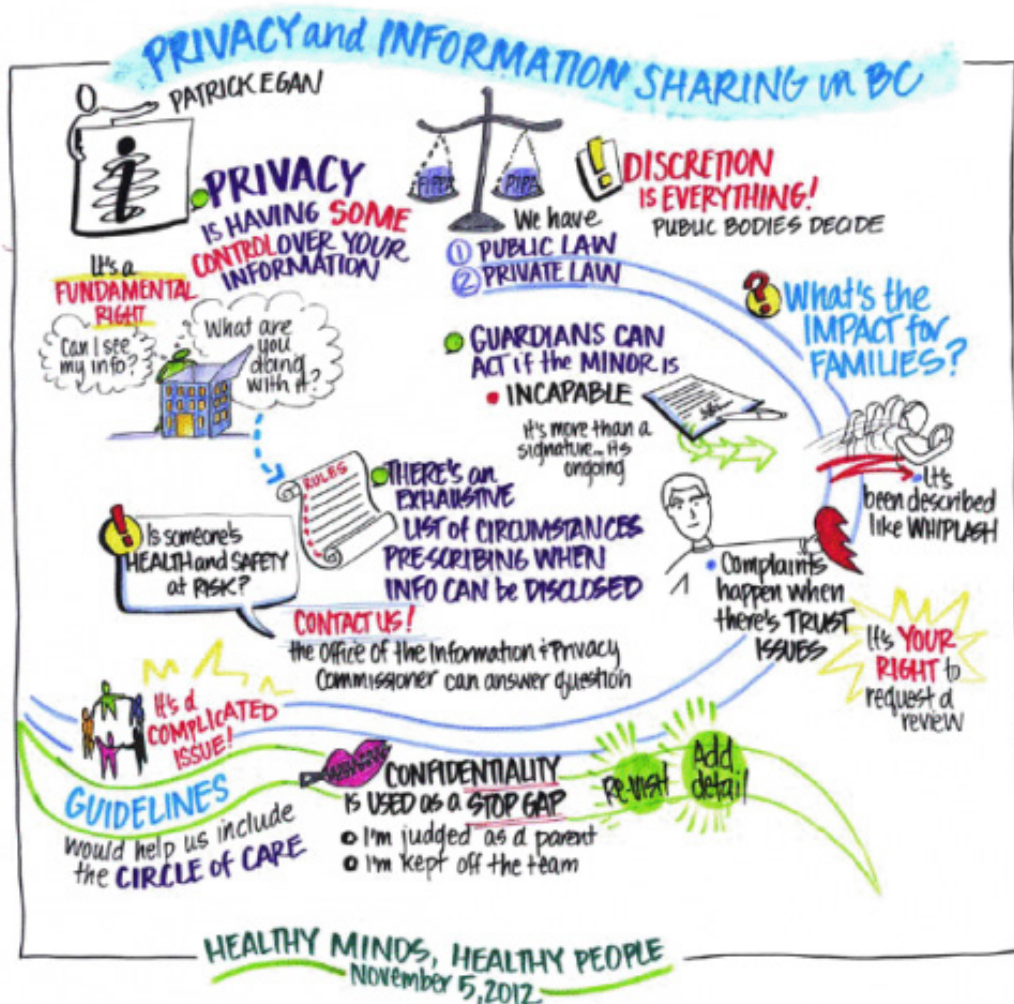 PRIVACY and INFORMATION SHARING in BC
PATRICK EGAN
i
PRIVACY
IS HAVING SOME
CONTROL OVER YOUR
INFORMATION
It's a
FUNDAMENTAL
RIGHT
Can I see
my info?
What are
you
doing
with it?
FIPPA
PIPA
We have
① PUBLIC LAW
② PRIVATE LAW
! DISCRETION
IS EVERYTHING!
PUBLIC BODIES DECIDE
? WHAT'S the
IMPACT for
FAMILIES?
GUARDIANS CAN
ACT if the MINOR is
• INCAPABLE
it's more than a
signature... its
ongoing
• It's
been described
like WHIPLASH
RULES
THERE'S an
EXHAUSTIVE
LIST of CIRCUMSTANCES
PRESCRIBING WHEN
INFO CAN be DISCLOSED
! Is someone's
HEALTH and SAFETY
at RISK?
CONTACT US!
the Office of the Information & Privacy
Commissioner can answer question
• Complaints
happen when
there's TRUST
ISSUES
It's YOUR
RIGHT to
request a
review
It's a
COMPLICATED
ISSUE!
GUIDELINES
would help us include
the CIRCLE of CARE
CONFIDENTIALITY
is USED as a STOP GAP
o I'm judged as a parent
o I'm kept off the team
Re-visit
Add
detail
HEALTHY MINDS, HEALTHY PEOPLE
November 5, 2012